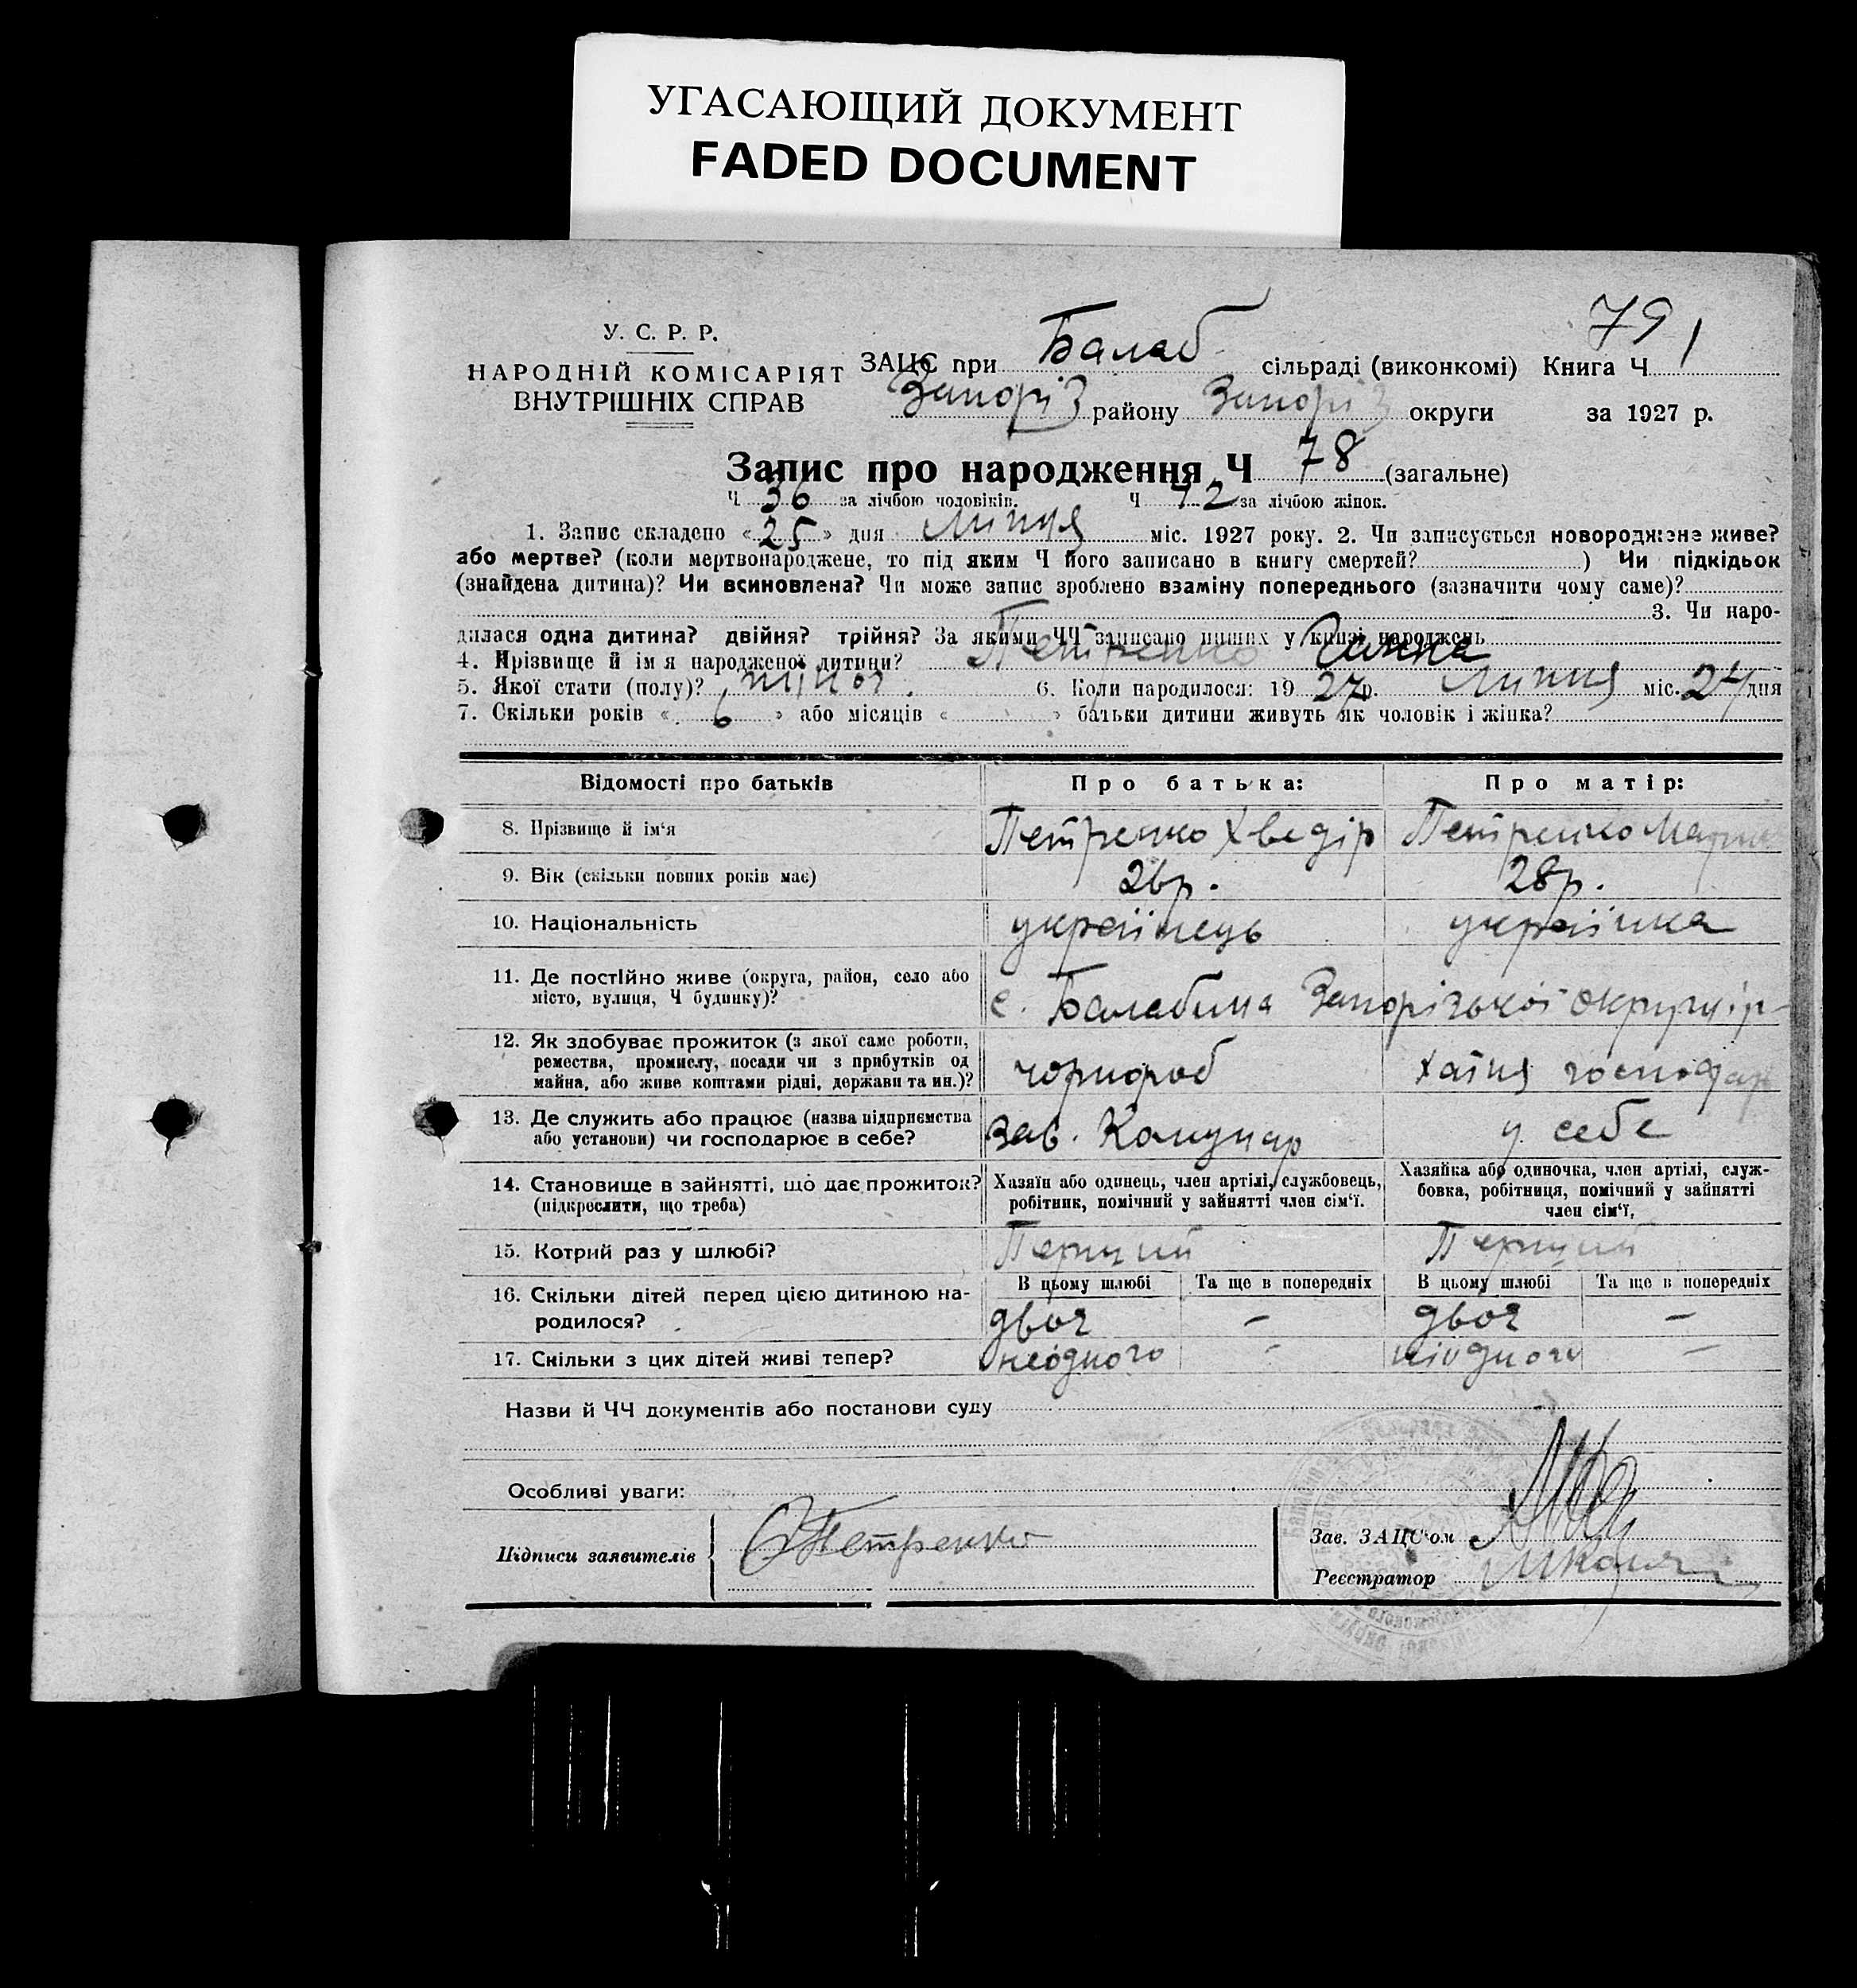 УГАСАЮЩИЙ ДОКУМЕНТ
FADED DOCUMENT
79
У. С. Р. Р.
НАРОДНІЙ КОМІСАРІЯТ
ВНУТРІШНІХ СПРАВ
ЗАЦС при Балаб сільраді (виконкомі) Книга Ч 1
Запоріз району Запоріз округи за 1927 р.
Запис про народження Ч 78 (загальне)
Ч 36 за лічбою чоловіків. Ч 42 за лічбою жінок.
1. Запис складено « 25 » дня липня міс. 1927 року. 2. Чи записується новороджене живе?
або мертве? (коли мертвонароджене, то під яким Ч його записано в книгу смертей? ) Чи підкідьок
(знайдена дитина)? Чи всиновлена? Чи може запис зроблено взаміну попереднього (зазначити чому саме)?
3. Чи наро-
дилася одна дитина? двійня? трійня? За якими ЧЧ записано инших у книзі народжень
4. Прізвище й ім я народженої дитини? Петренко Ганна
5. Якої стати (полу)? жіноч. 6. Коли народилося: 19 27 р. липня міс. 24 дня
7. Скільки років « 6 » або місяців « » батьки дитини живуть як чоловік і жінка?
Відомості про батьків Про батька: Про матір:
8. Прізвище й ім‘я Петренко Хведір Петренко
9. Вік (скільки повних років має) 26р. 28р.
10. Національність українець українка
11. Де постійно живе (округа, район, село або
місто, вулиця, Ч будинку)? с. Балабина Запорізької округи
12. Як здобуває прожиток (з якої саме роботи,
ремества, промислу, посади чи з прибутків од
майна, або живе коштами рідні, держави та ин.)? чорнороб хатня господар
13. Де служить або працює (назва підприємства
або установи) чи господарює в себе? Зав. Комунар у себе
14. Становище в зайнятті, що дає прожиток?
(підкреслити, що треба)
Хазяїн або одинець, член артілі, службовець,
робітник, помічний у зайнятті член сім‘ї.
Хазяйка або одиночка, член артілі, служ-
бовка, робітниця, помічний у зайнятті
член сім‘ї.
15. Котрий раз у шлюбі? Перший Перший
В цьому шлюбі Та ще в попередніх В цьому шлюбі Та ще в попередніх
16. Скільки дітей перед цією дитиною на-
родилося? двоє - двоє -
17. Скільки з цих дітей живі тепер? неодного - ніодного -
Назви й ЧЧ документів або постанови суду
Особливі уваги:
Підписи заявителів Петренко
Зав. ЗАЦС‘ом
Реєстратор